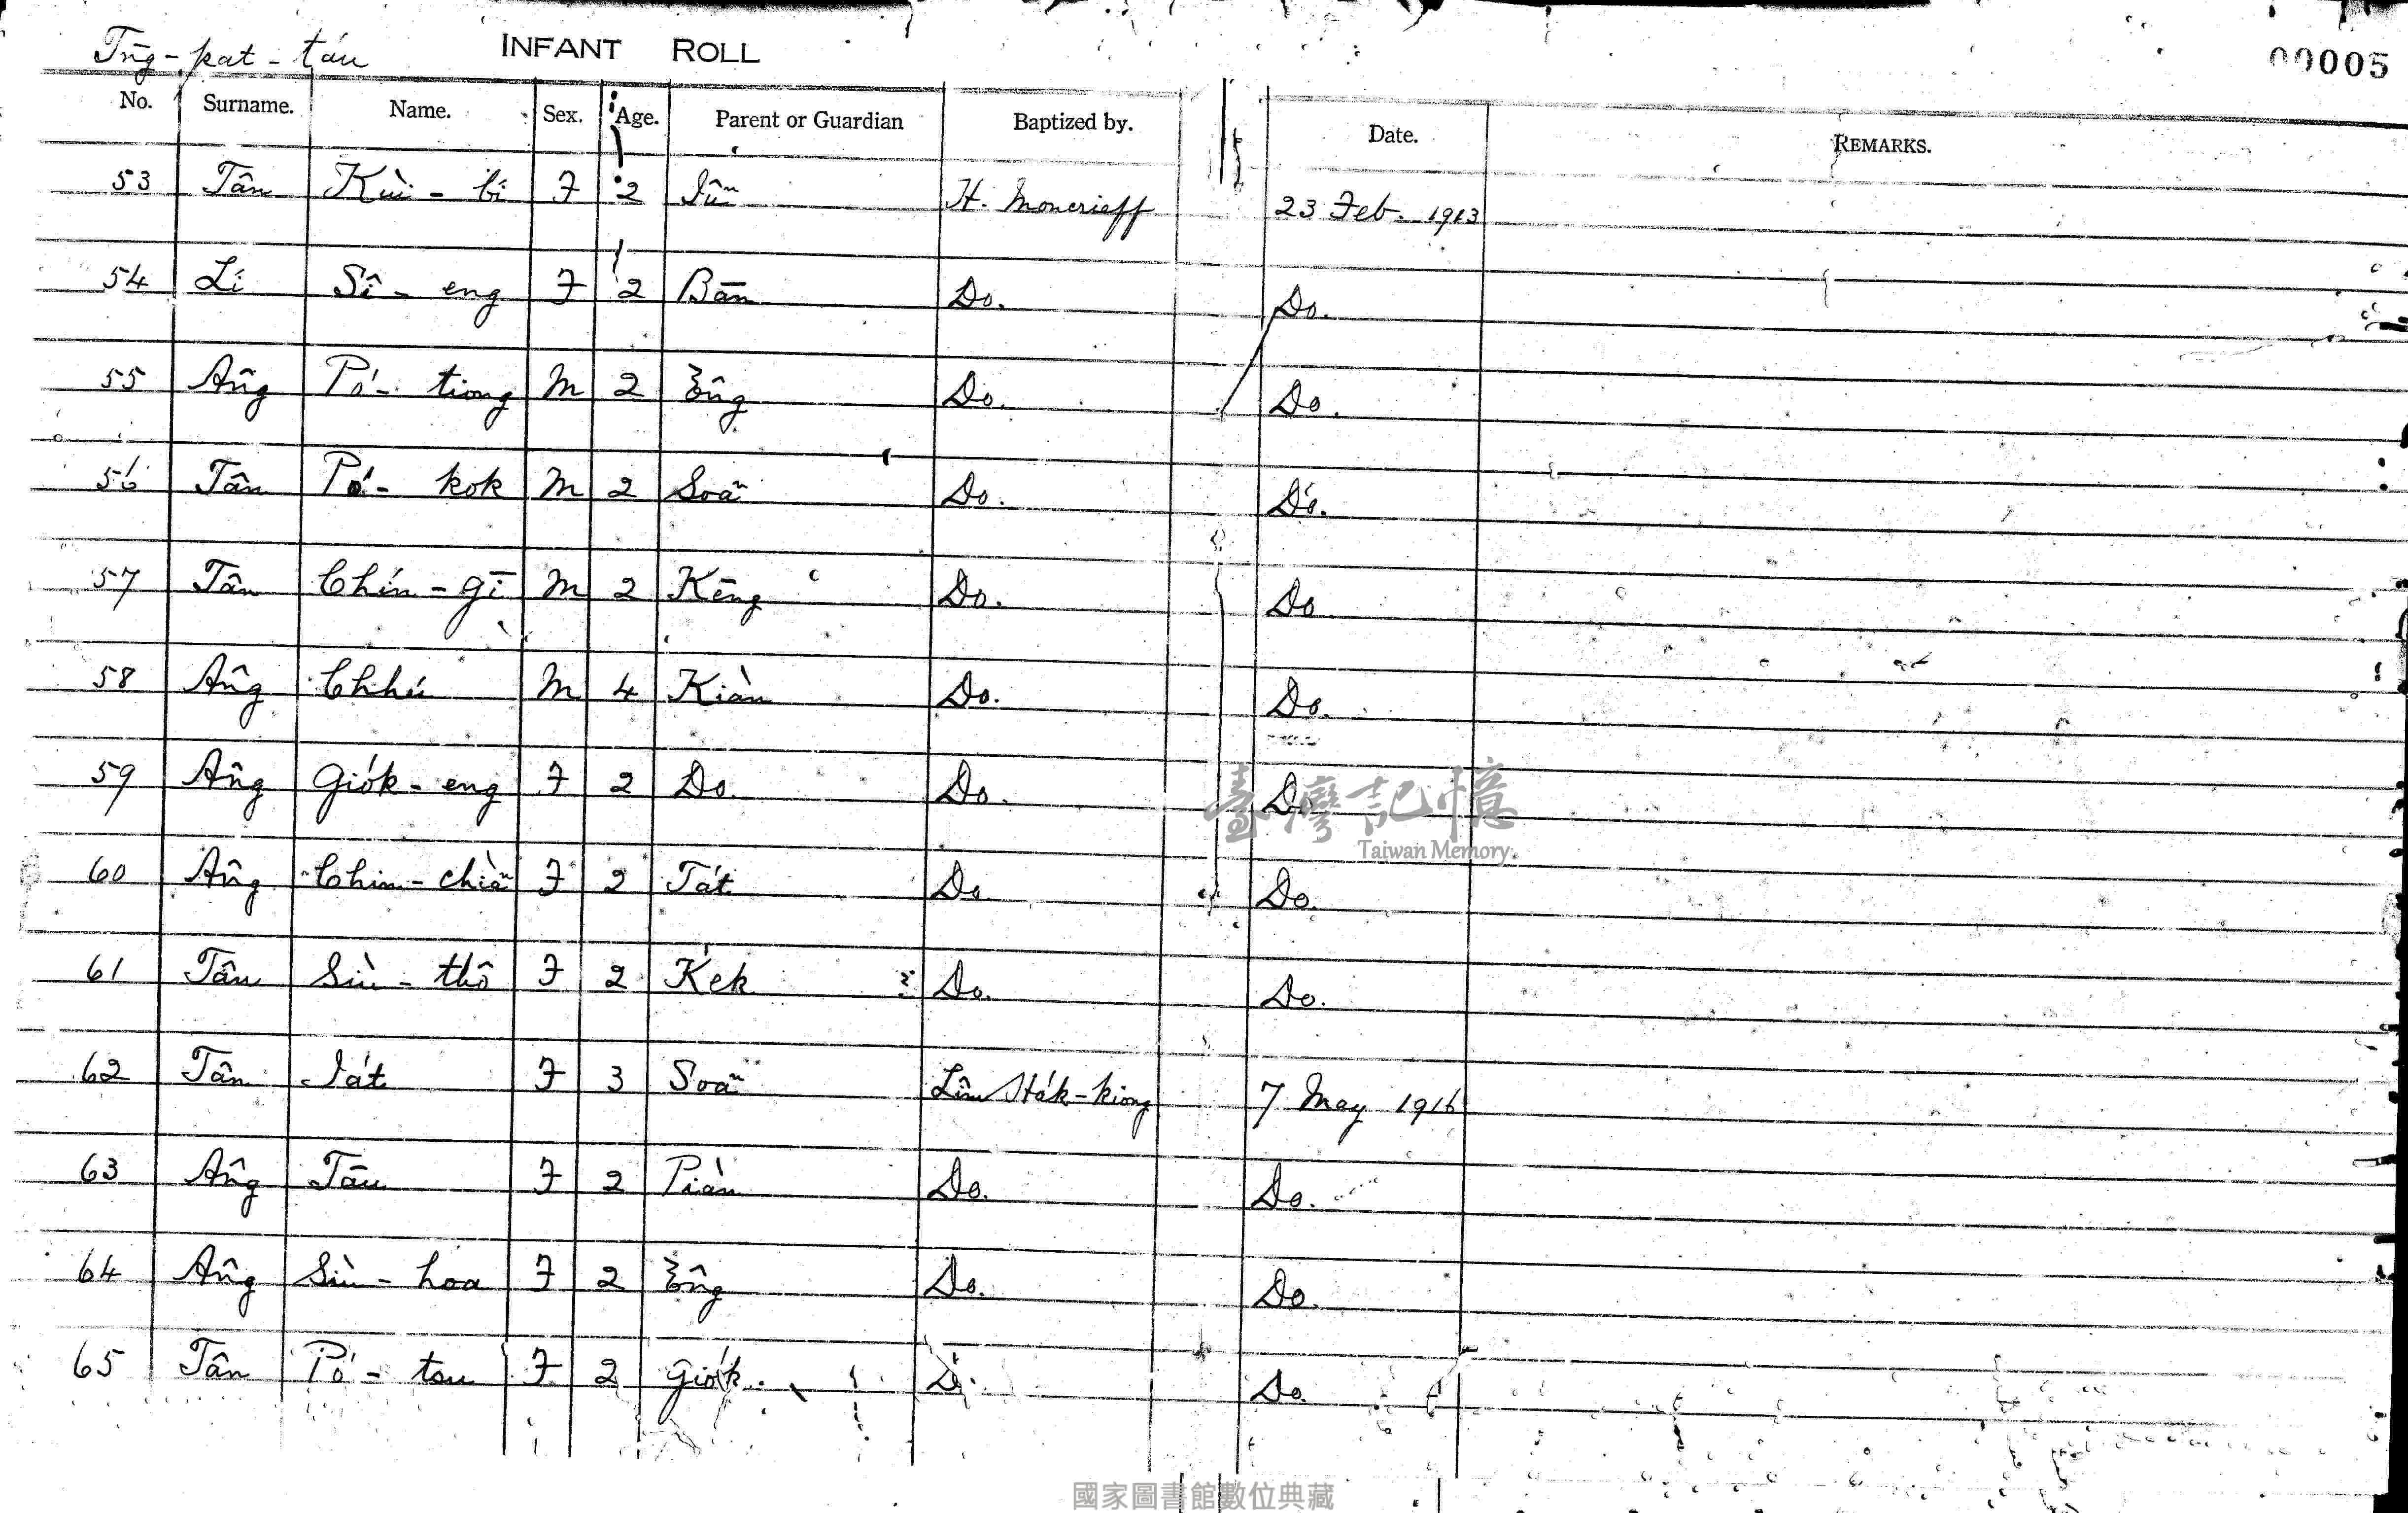 Tn̄g-kat-táu INFANT ROLL 00005
No. Surname. Name. Sex. Age. Parent or Guardian Baptized by. Date. REMARKS.
53 Tân Kùi-bí F 2 Iûⁿ H. Moncrieff 23 Feb. 1913
54 Lí Sî-eng F 2 Bān Do. Do.
55 Âng Pó-tiong M 2 Êng Do. Do.
56 Tân Pó-kok M 2 Soāⁿ Do. Do.
57 Tân Chín-gī M 2 Kēng Do. Do
58 Âng Chhéi M 4 Kiàn Do. Do.
59 Âng Gio̍k-eng F 2 Do. Do. Do
60 Âng Chin-chiàⁿ F 2 Ta̍t Do. Do.
61 Tân Siù-thô F 2 Kek Do. Do.
62 Tân Ia̍t F 3 Soāⁿ Lîm Ha̍k-kiong 7 May 1916
63 Âng Tāu F 2 Piàn Do. Do.
64 Âng Siù-hoa F 2 Êng Do. Do.
65 Tân Pó-tsu F 2 Gio̍k Do. Do.
臺灣記憶
Taiwan Memory
國家圖書館數位典藏